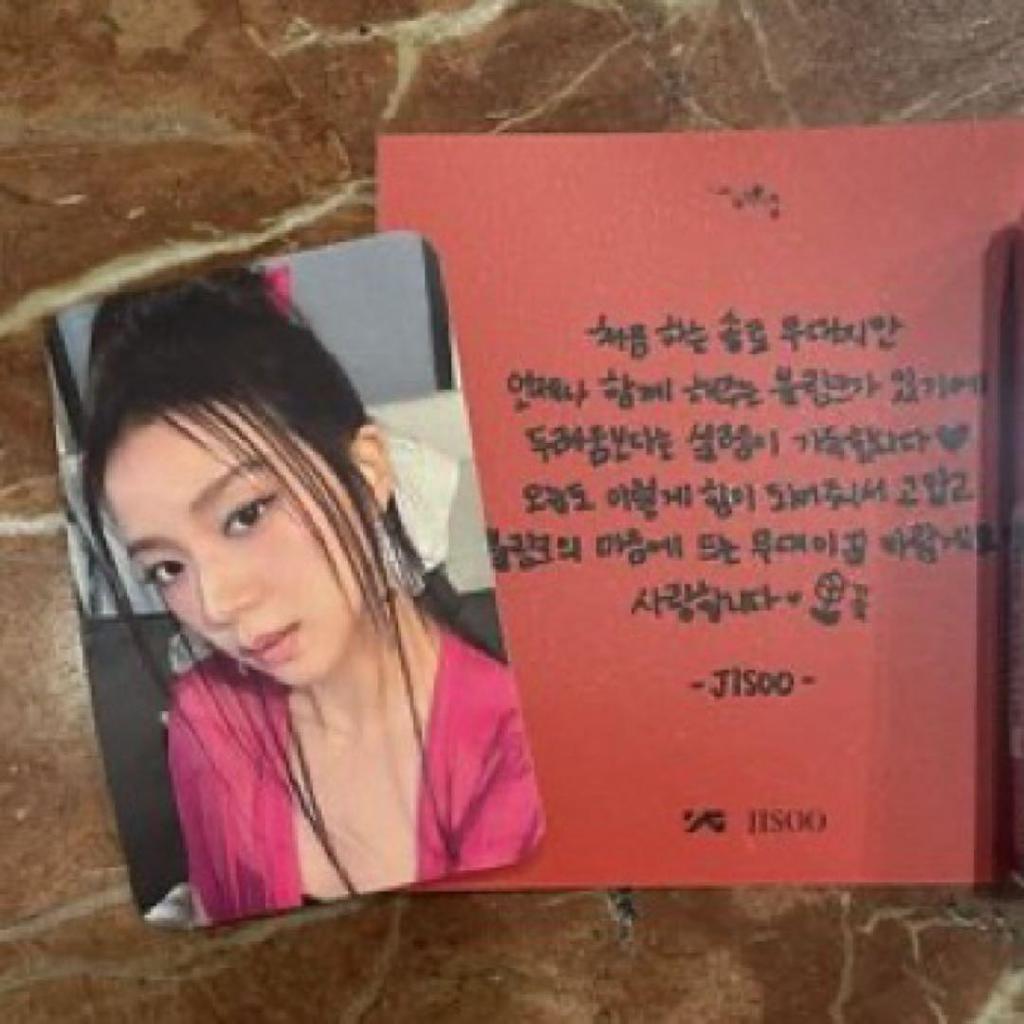 처음 하는 솔로 무대지만
언제나 함께 해주는 블링크가 있기에
두려움보다는 설렘이 가득합니다♥
오늘도 이렇게 힘이 되어주셔서 고맙고
블링크의 마음에 드는 무대이길 바랄게요
사랑합니다♥
-JISOO-
YG JISOO